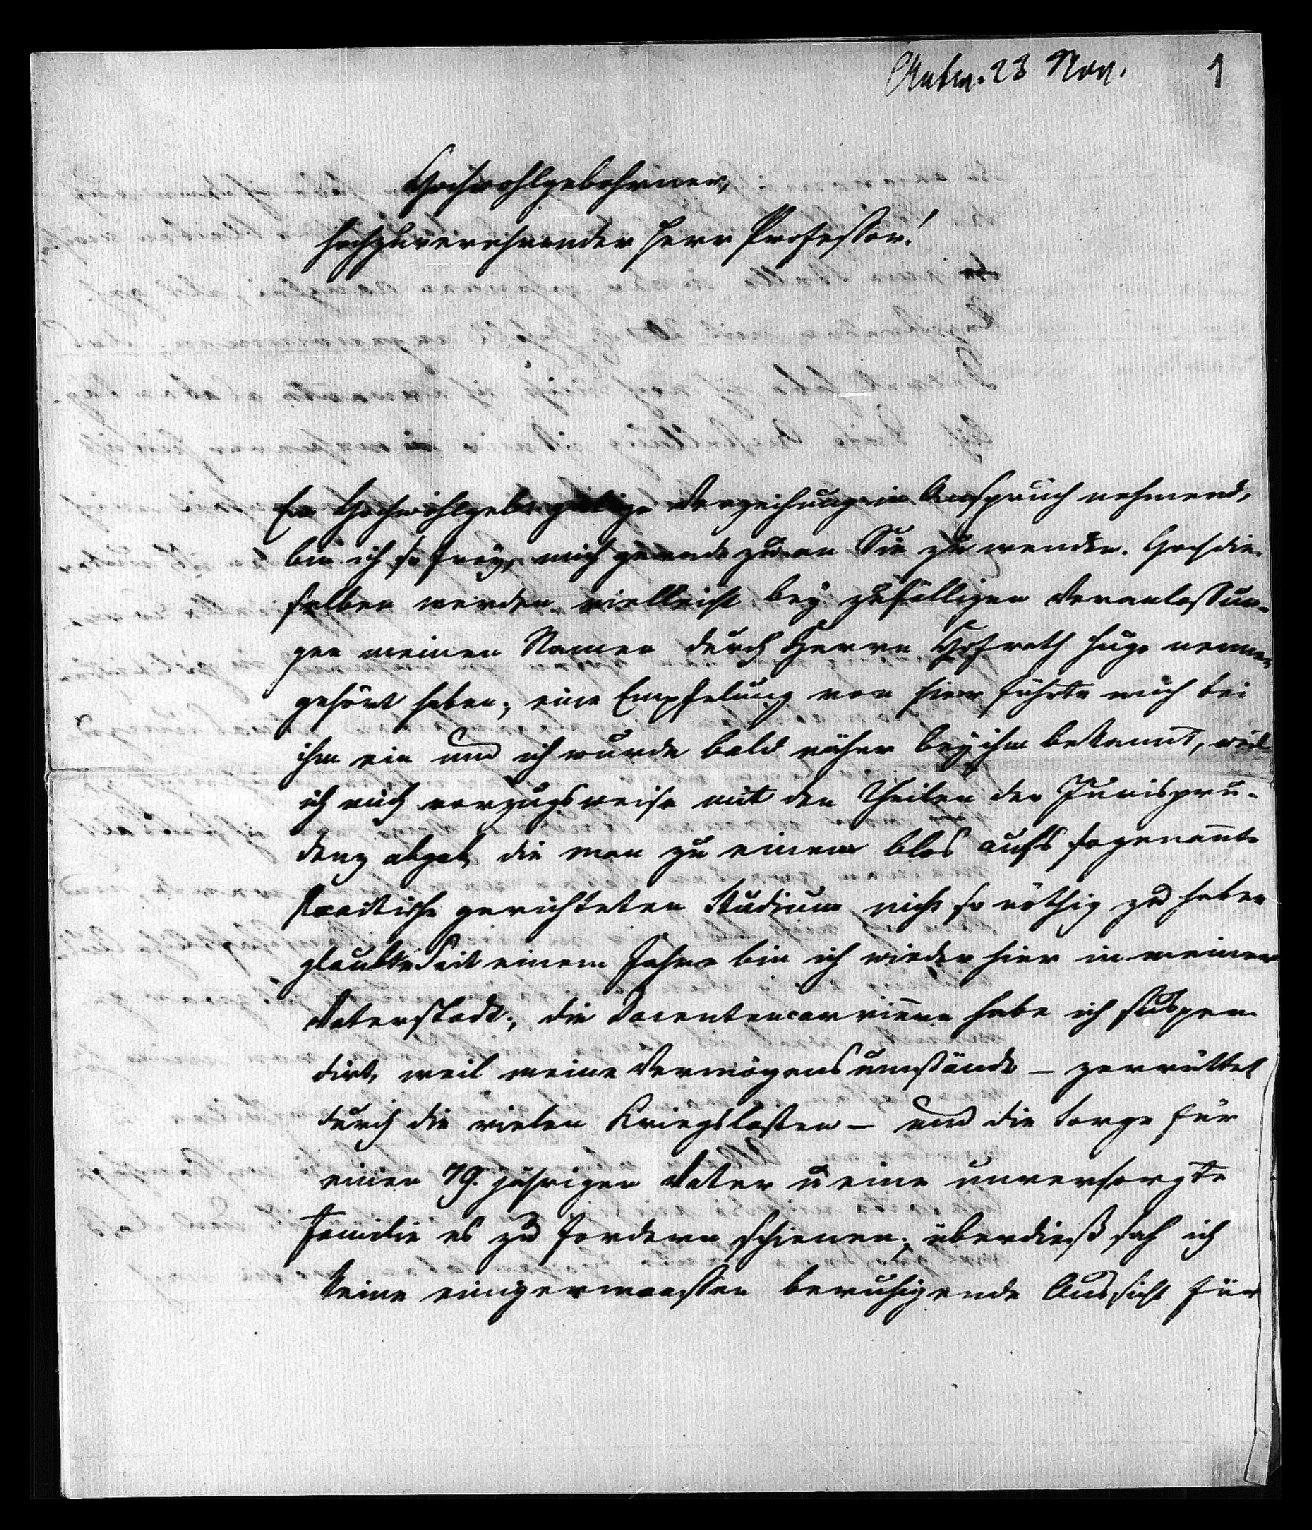 Antw. 23 Nov. 1
Hochwohlgebohrner,
hochzuverehrender Herr Professor!
Ew Hochwohlgeb. gütige Verzeihung in Anspruch nehmend,
bin ich so frey, mich geradezu an Sie zu wenden. Hochdie-
selben werden vielleicht bey zufälligen Veranlassun-
gen meinen Namen durch Herrn Hofrath Hugo nennen
gehört haben; eine Empfelung von hier führte mich bei
ihm ein und ich wurde bald näher bey ihm bekannt, weil
ich mich vorzugsweise mit den Theilen der Jurispru-
denz abgab, die man zu einem blos aufs sogenannte
Practische gerichteten Studium nicht so nöthig zu haben
glaubt. Seit einem Jahre bin ich wieder hier in meiner
Vaterstadt; die Docentencarriere habe ich suspen-
dirt, weil meine Vermögensumstände – zerrüttet
durch die vielen Kriegslasten – und die Sorge für
einen 79 jährigen Vater u eine unversorgte
Familie es zu fordern schienen; überdieß sah ich
keine einigermaassen beruhigende Aussicht für